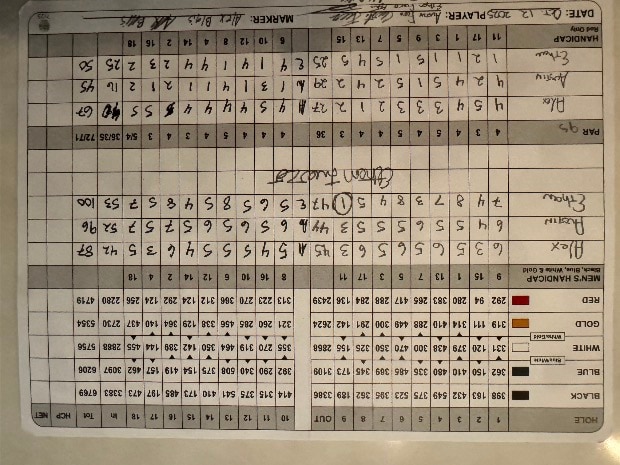 HOLE 1 2 3 4 5 6 7 8 9 OUT 10 11 12 13 14 15 16 17 18 In Tot HCP NET
BLACK 398 163 432 549 375 523 395 362 189 3386 414 315 375 541 410 173 485 197 473 3383 6769
BLUE 362 150 410 480 335 485 369 345 173 3109 392 290 340 508 375 154 419 157 462 3097 6206
Blue/White
WHITE 331 120 379 438 300 470 350 325 155 2868 355 270 319 464 350 142 389 144 455 2888 5756
White/Gold
GOLD 319 111 314 410 288 449 300 291 142 2624 321 260 285 456 338 129 364 140 437 2730 5354
RED 292 94 280 383 265 417 288 284 136 2439 313 223 270 366 312 124 292 124 256 2280 4719
MEN'S HANDICAP 9 15 1 13 7 5 3 17 11 8 16 10 6 12 14 2 4 18
Black, Blue, White & Gold
Alex 6 3 5 6 5 6 5 6 3 45 A 5 4 5 5 5 4 6 3 5 42 87
Austin 6 4 5 5 6 5 5 5 3 44 A 5 6 5 6 6 5 7 5 7 52 96
Ethan 7 4 8 7 3 8 4 5 1 47 E 5 6 5 8 5 4 8 5 7 53 100
Ethan
PAR 4 3 4 5 4 5 4 4 3 36 4 4 4 5 4 3 4 3 5/4 36/35 72/71
Alex 4 5 4 3 3 3 2 2 1 27 A 4 5 4 4 4 4 5 5 67
Austin 4 2 4 5 1 5 2 4 2 29 A 1 3 1 1 1 4 2 1 2 16 45
Ethan 1 2 1 1 5 1 5 4 5 25 E 4 1 4 1 4 4 2 3 2 25 50
HANDICAP 11 17 1 3 9 5 7 13 15 6 10 12 8 4 14 2 16 18
Red Only
DATE: Oct. 12, 2025 PLAYER: MARKER: Alex